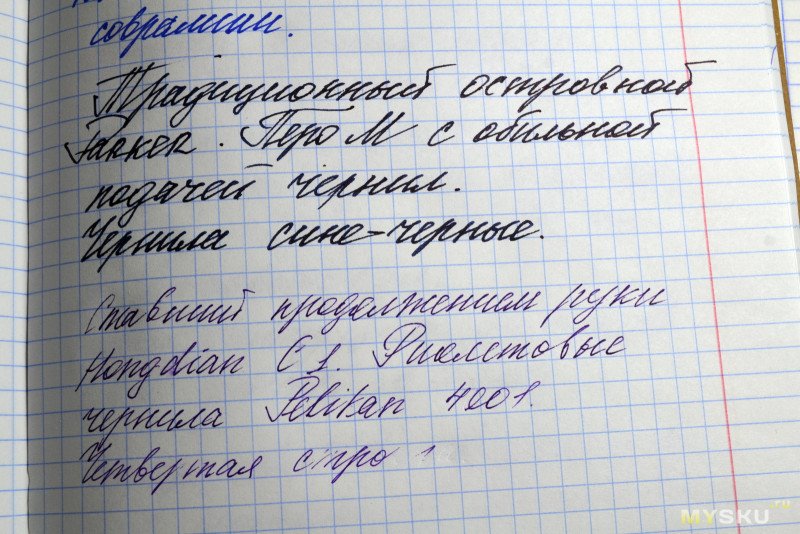 соврамши.
Традиционный островной
Parker. Перо М с обильной
подачей чернил.
Чернила сине-черные.
Ставший продолжением руки
Hongdian C1. Фиолетовые
чернила Pelikan 4001.
Четвертая стро
MYSKU.ru